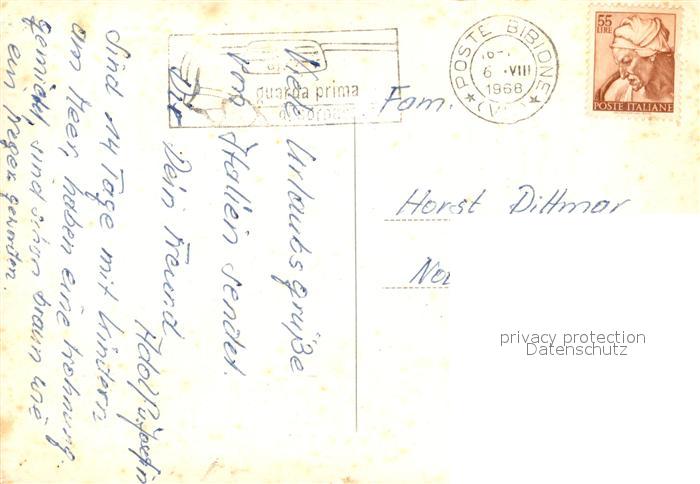 Viele Urlaubsgrüße
von Italien sendet
Dir Dein Freund
Adolf u. Josefin
Sind 14 Tage mit Kindern
am Meer, haben eine Wohnung
gemietet, sind schon braun wie
ein Neger geworden.
guarda prima
POSTE BIBIONE
6 VIII
1968
(VE)
55
LIRE
POSTE ITALIANE
Fam.
Horst Dittmar
privacy protection
Datenschutz